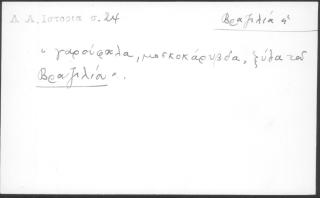 Δ.Α. Ιστορία σ. 24
Βραζιλιά ἡ
" γαρούφαλα, μοσκοκάρυδα, ξύλα τοῦ
Βραζιλιά".